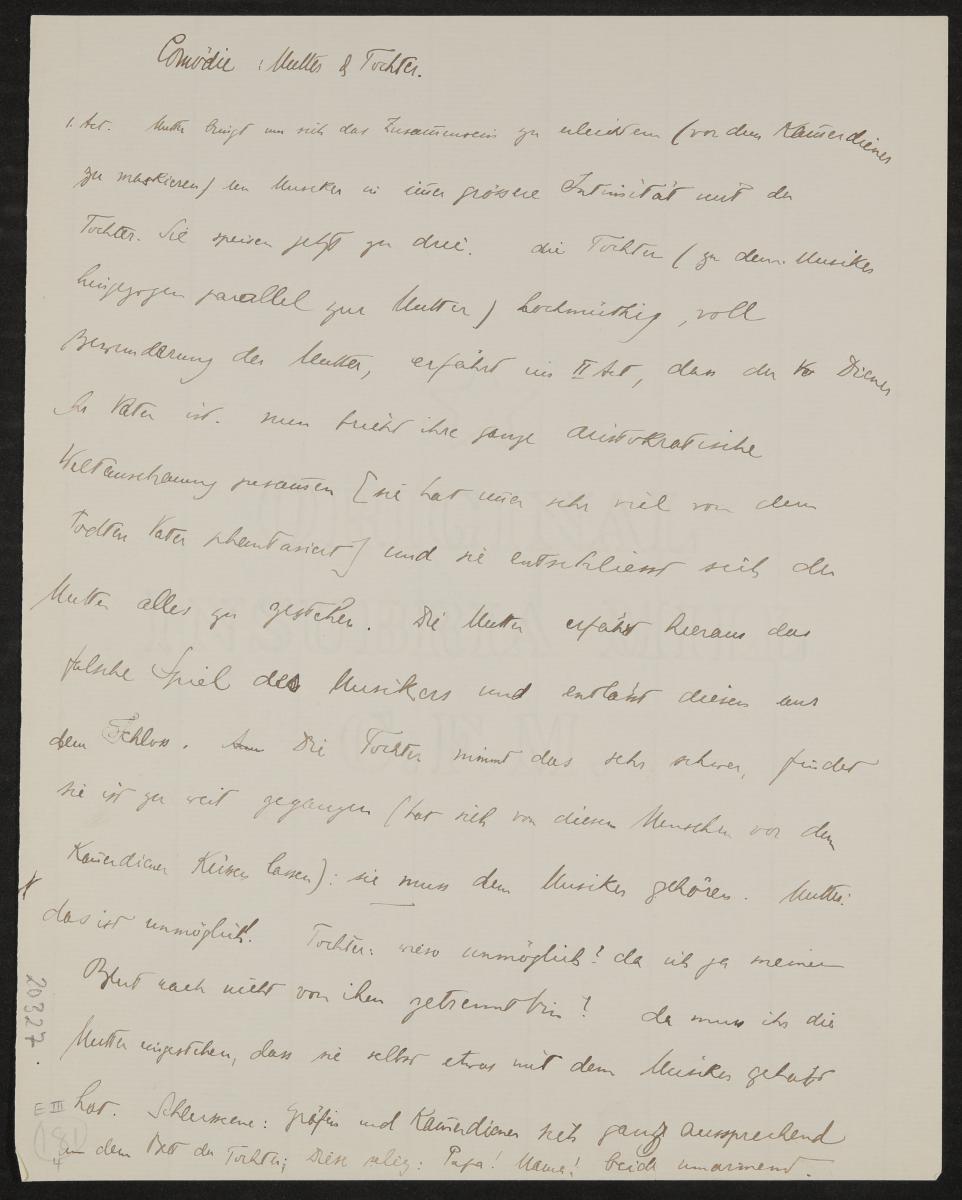 Comödie: Mutter & Tochter.
1. Act. Mutter bringt um sich das Zusammensein zu erleichtern (vor dem Kam̅erdiener
zu maskieren) den Musiker in im̅er grössere Intimität mit der
Tochter. Sie speisen jetzt zu drei. die Tochter (zu dem Musiker
hingezogen parallel zur Mutter) hochmüthig, voll
Bewunderung der Mutter, erfährt im II Act, dass der Diener
ihr Vater ist. nun bricht ihre ganze aristokratische
Weltanschauung zusam̅en [sie hat im̅er sehr viel von dem
todten Vater phantasiert] und sie entschliesst sich der
Mutter alles zu gestehen. Die Mutter erfährt hieraus das
falsche Spiel des Musikers und entlässt diesen aus
dem Schloss. Die Tochter nimmt das sehr schwer, findet
sie ist zu weit gegangen (hat sich von diesem Menschen vor dem
Kam̅erdiener küssen lassen): sie muss dem Musiker gehören. Mutter:
das ist unmöglich. Tochter: wieso unmöglich? da ich ja meinem
Blut nach nicht von ihm getrennt bin! da muss ihr die
Mutter eingestehen, dass sie selbst etwas mit dem Musiker gehabt
hat. Schlussscene: Gräfin und Kam̅erdiener sich ganz aussprechend
an dem Bett der Tochter; Diese selig: Papa! Mama! beide umarmend.
20327.
E III
181
4